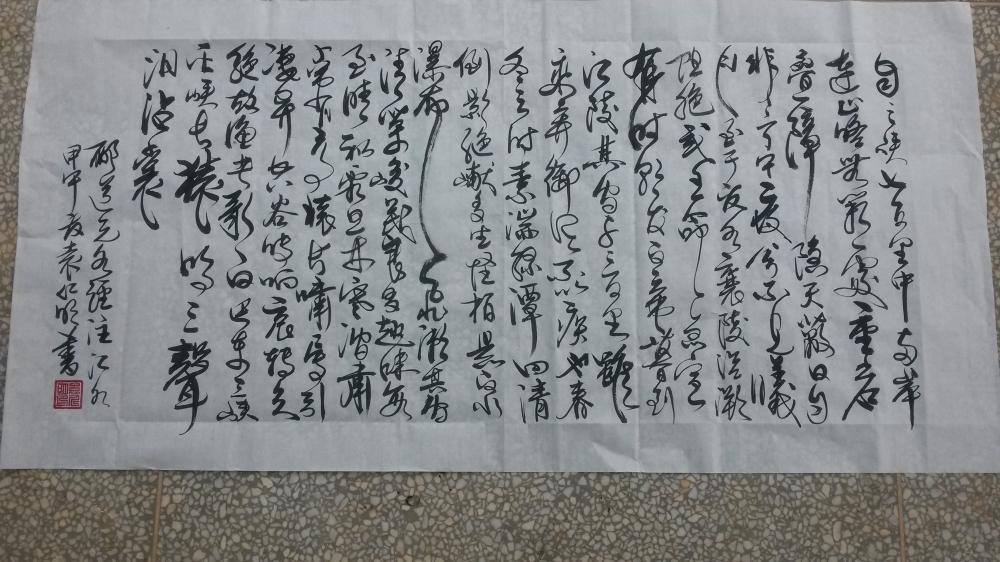 自三峡七百里中两岸
连山略無阙處重岩
疊嶂隐天蔽日自
非亭午夜分不见曦
月至于夏水襄陵沿溯
阻绝或王命急宣
有时朝发白帝暮到
江陵其间千二百里雖
乘奔御风不以疾也春
冬之时素湍绿潭回清
倒影绝巘多生怪柏悬泉
瀑布飞漱其间
清荣峻茂良多趣味每
至晴初霜旦林寒涧肃
常有高猿长啸属引
凄异空谷传响哀转久
绝故渔者歌曰巴东三峡
巫峡长猿鸣三聲
泪沾裳
郦道元水经注江水
甲申 袁仁 書